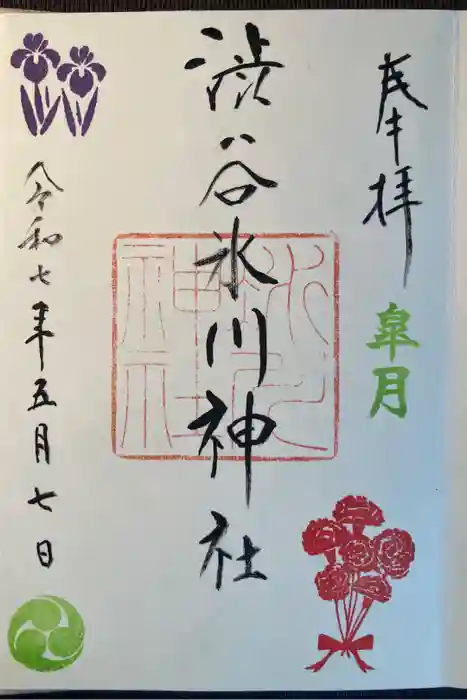 奉拝
皐月
渋谷氷川神社
令和七年五月七日